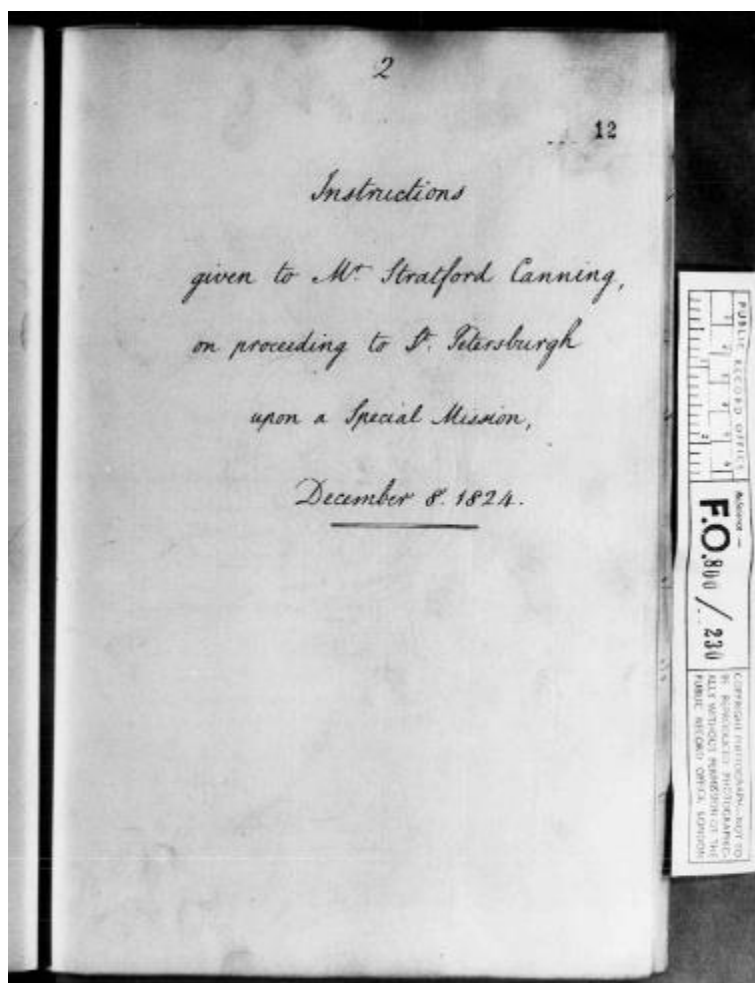 2
12
Instructions
given to Mr. Stratford Canning,
on proceeding to St. Petersburgh
upon a Special Mission,
December 8. 1824.
PUBLIC RECORD OFFICE
Reference —
F.O. 800 / 230
COPYRIGHT PHOTOGRAPH—NOT TO
BE REPRODUCED PHOTOGRAPHIC-
ALLY WITHOUT PERMISSION OF THE
PUBLIC RECORD OFFICE, LONDON